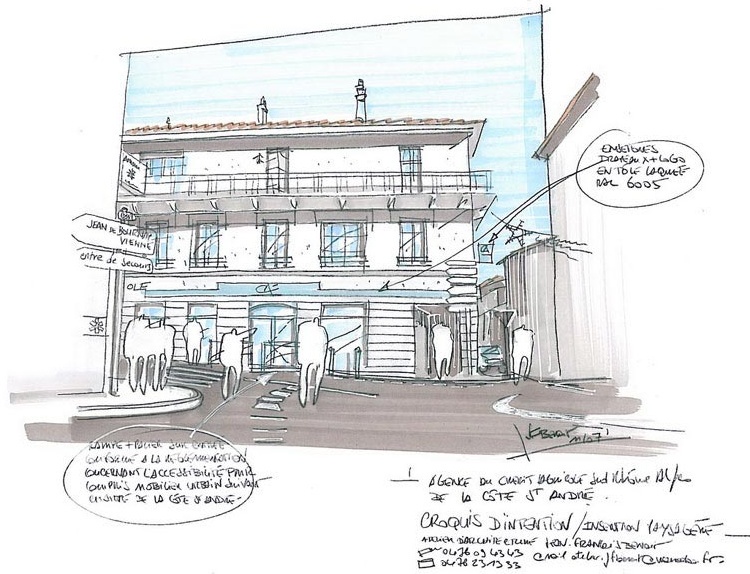 ENSEIGNES
DRAPEAUX + LOGO
EN TOLE LAQUÉE
RAL 6005
JEAN DE BOURNAY
VIENNE
centre de secours
OLE
CA
RAMPE + PALIER SUR ENTRÉE
CONFORME A LA RÉGLEMENTATION
CONCERNANT L'ACCESSIBILITÉ
MOBILIER URBAIN SUIVANT
DE LA CÔTE ST ANDRÉ
11/07
AGENCE DU CREDIT AGRICOLE Sud Rhône Alpes
DE LA CÔTE ST ANDRÉ.
CROQUIS D'INTENTION / INSERTION PAYSAGÈRE
ATELIER D'ARCHITECTURE JEAN. FRANÇOIS BENOIT
04 76 09 43 43
04 78 23 19 33